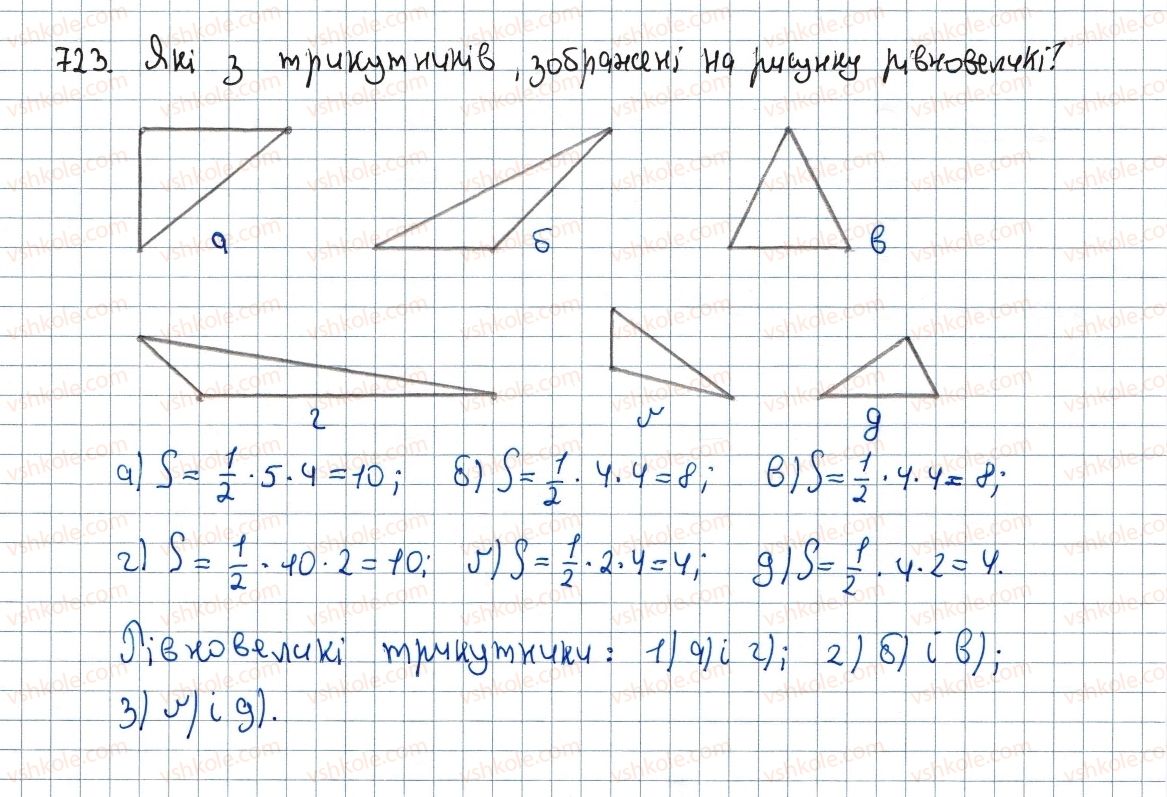 723. Які з трикутників, зображені на рисунку рівновеликі?
а б в
г ґ д
а) S = 1/2 · 5 · 4 = 10; б) S = 1/2 · 4 · 4 = 8; в) S = 1/2 · 4 · 4 = 8;
г) S = 1/2 · 10 · 2 = 10; ґ) S = 1/2 · 2 · 4 = 4; д) S = 1/2 · 4 · 2 = 4.
Рівновеликі трикутники: 1) а) і г); 2) б) і в);
3) ґ) і д).
vshkole.com